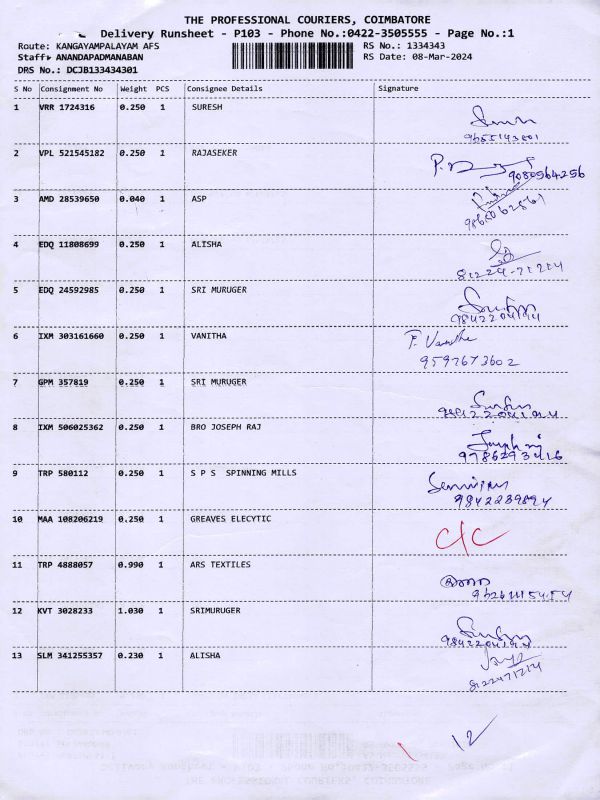 THE PROFESSIONAL COURIERS, COIMBATORE
Delivery Runsheet - P103 - Phone No.:0422-3505555 - Page No.:1
Route: KANGAYAMPALAYAM AFS RS No.: 1334343
Staff: ANANDAPADMANABAN RS Date: 08-Mar-2024
DRS No.: DCJB133434301
S No Consignment No Weight PCS Consignee Details Signature
1 VRR 1724316 0.250 1 SURESH
2 VPL 521545182 0.250 1 RAJASEKER
9080564256
3 AMD 28539650 0.040 1 ASP
4 EDQ 11808699 0.250 1 ALISHA
81224-71214
5 EDQ 24592985 0.250 1 SRI MURUGER
9842204194
6 IXM 303161660 0.250 1 VANITHA P. Vanitha
9597673602
7 GPM 357819 0.250 1 SRI MURUGER
8 IXM 506025362 0.250 1 BRO JOSEPH RAJ
9786293416
9 TRP 580112 0.250 1 S P S SPINNING MILLS
9842239894
10 MAA 108206219 0.250 1 GREAVES ELECYTIC C/C
11 TRP 4888057 0.990 1 ARS TEXTILES
12 KVT 3028233 1.030 1 SRIMURUGER
9842204194
13 SLM 341255357 0.230 1 ALISHA
8122471214
12